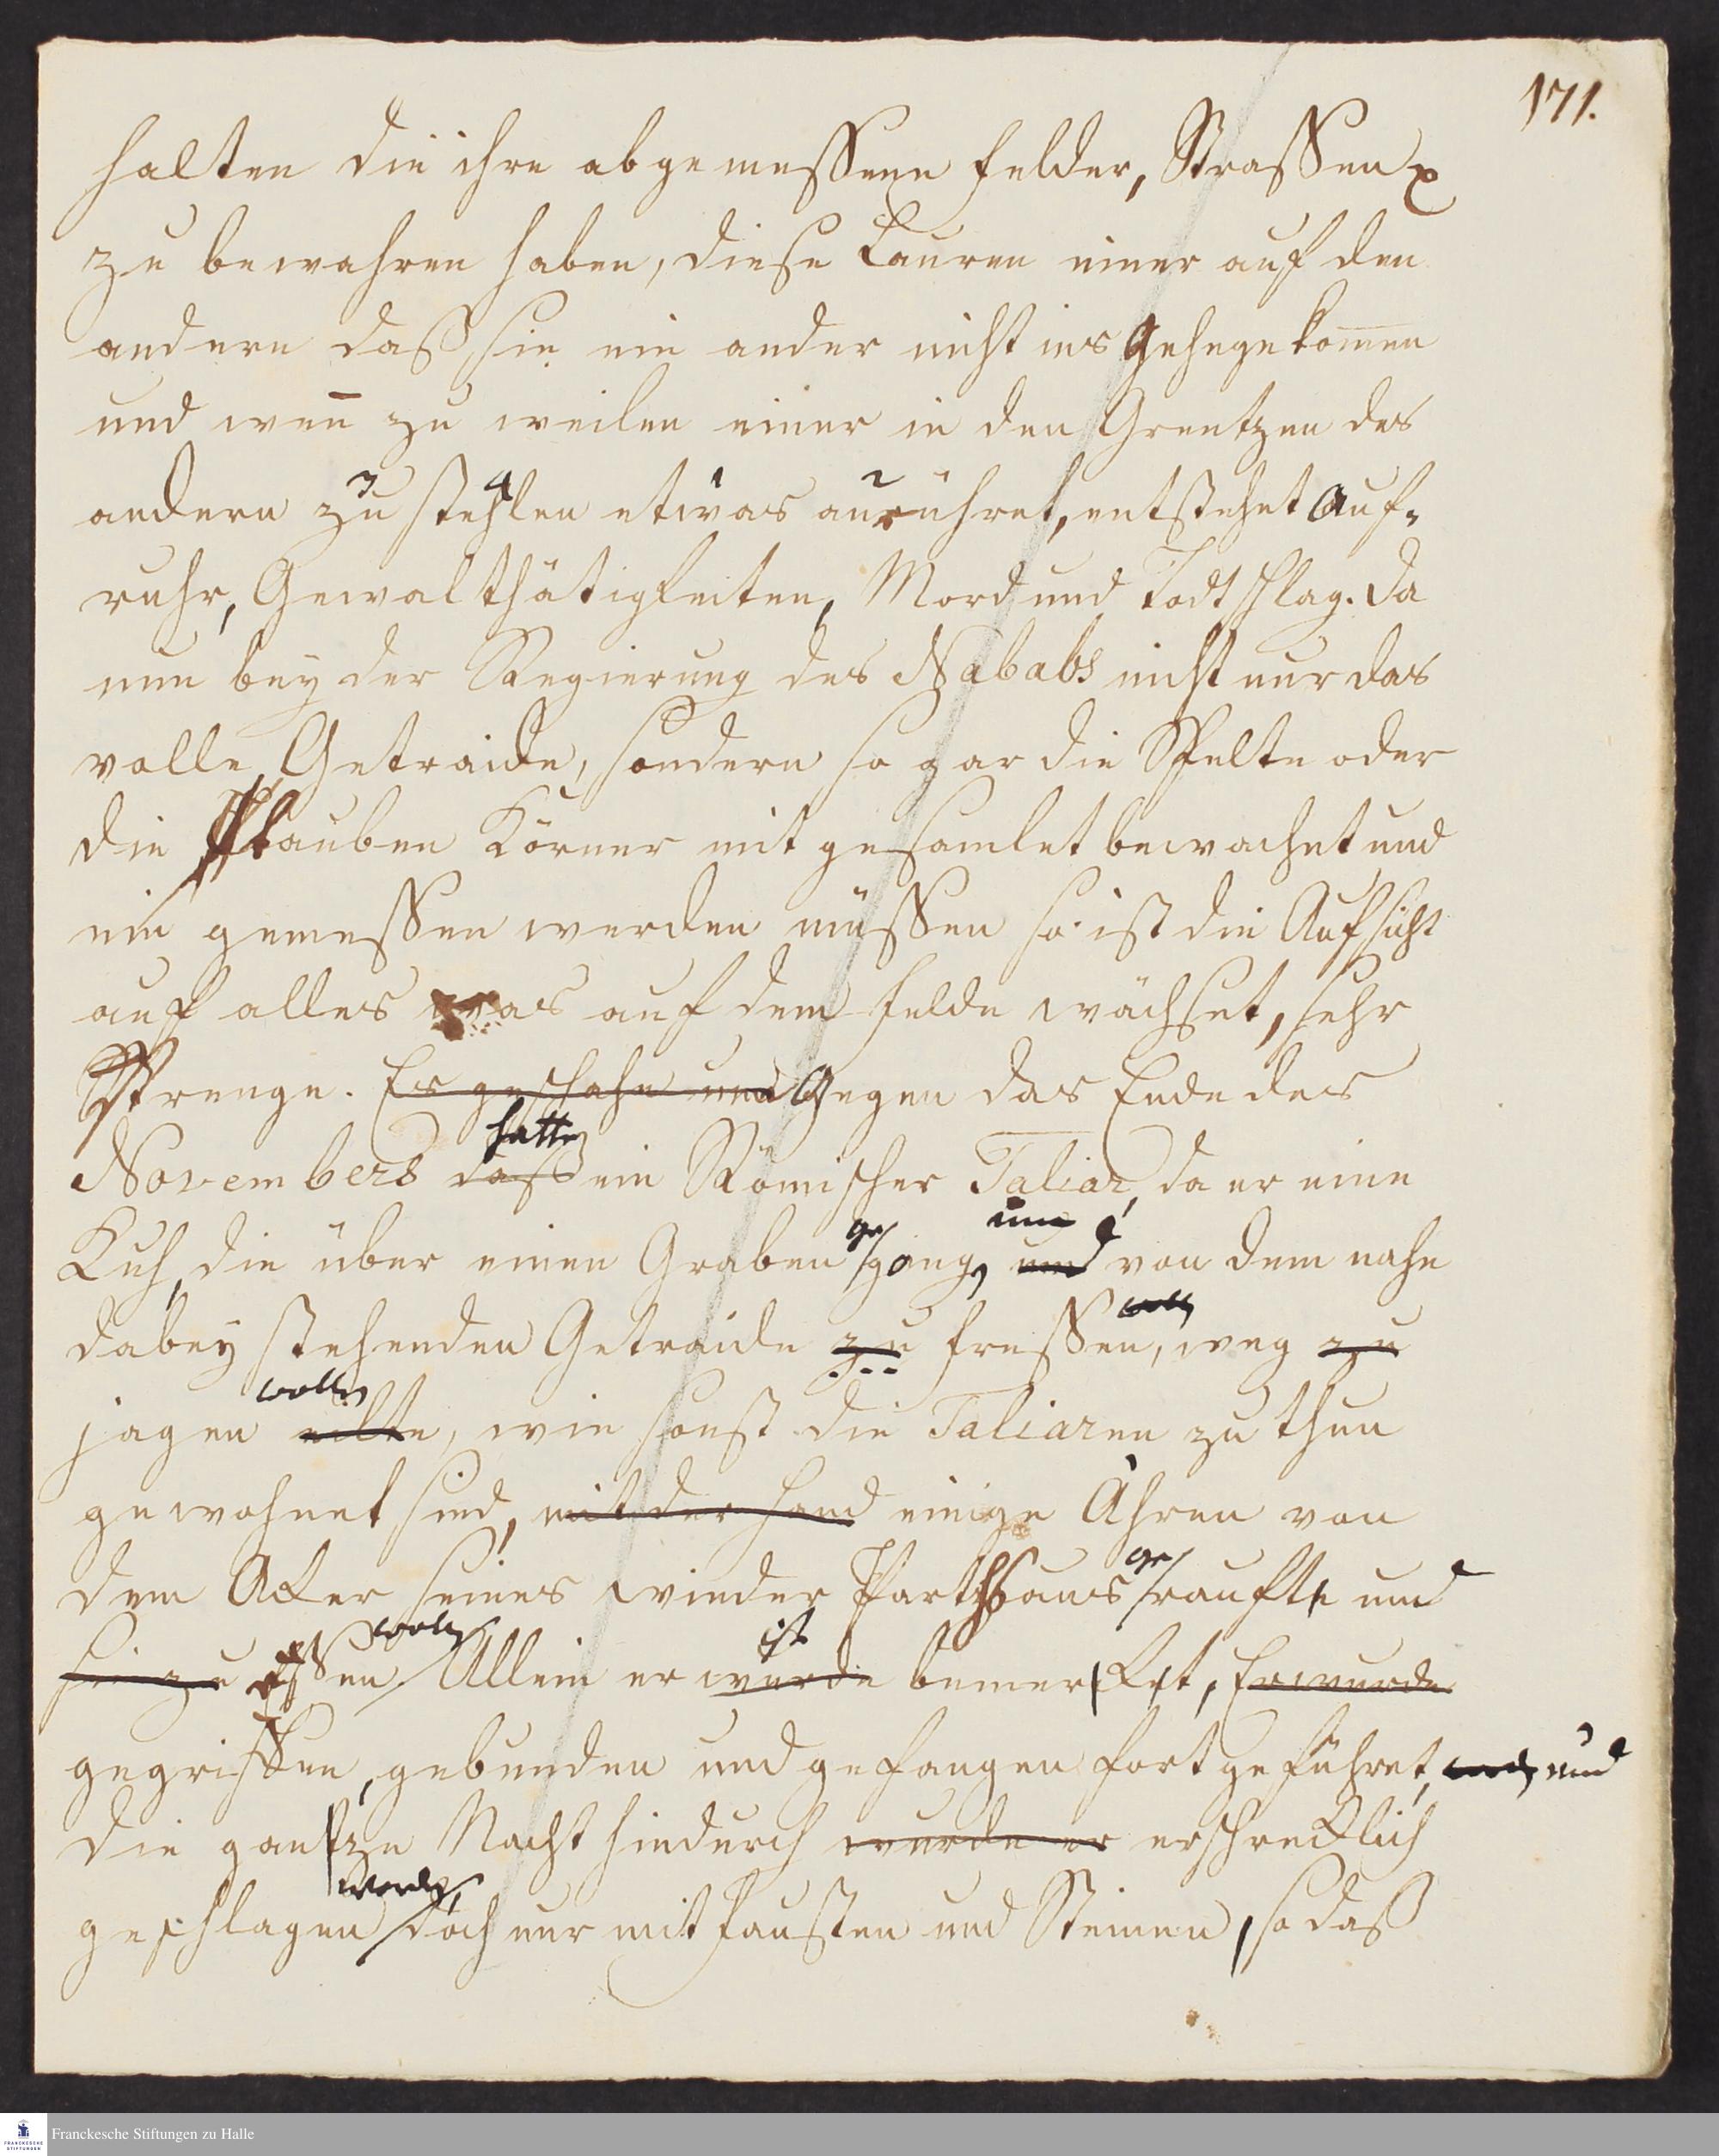 171.
halten die ihre abgemessene felder, Strassen ꝛc
zu bewahren haben, diese Lauren einer auf den
andern daß sie ein ander nicht ins Gehege kom̅en
und wen̅ zu weilen einer in den Grentzen des
3 4 1 2
andern zu stehlen etwas anrühret, entstehet Auf-
ruhr, Gewalthätigkeiten, Mord und Todtschlag. Da
nun bey der Regierung des Nababs nicht nur das
volle Getraide, sondern so gar die Spelte oder
die tauben Körner mit gesamlet bewachet und
ein gemessen werden müssen so ist die Aufsicht
auf alles was auf dem felde wächset, sehr
Strenge. Es geschahe und Gegen das Ende des
hatte
Novembers daß ein Römischer Taliar, da er eine
ge um
Kuh, die über einen Graben gang, und von dem nahe
woll
dabey stehenden Getraide zu fressen, weg zu
wollen
jagen eilte, wie sonst die Taliaren zu thun
gewohnet sind, mit der Hand einige Ähren von
ge
dem Acker seines wieder Parths aus raufte und
wollen ist
sie zu essen Allein er wurde bemercket, Er wurde
gegriffen, gebunden und gefangen fortgeführet, und
die gantze Nacht hindurch wurde er erschrecklich
worden,
geschlagen doch nur mit fausten und Steinen, so daß
Franckesche Stiftungen zu Halle
FRANCKESCHE STIFTUNGEN